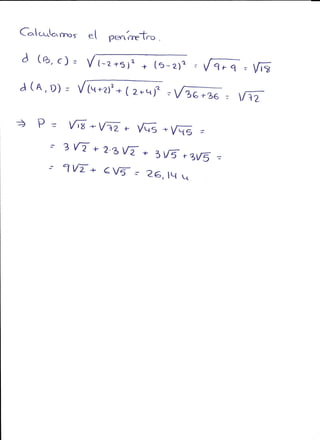 Calculamos el perímetro.
d (B, C) = √(-2+5)² + (5-2)² = √9+9 = √18
d (A, D) = √(4+2)² + (2+4)² = √36+36 = √72
⇒ P = √18 + √72 + √45 + √45 =
= 3√2 + 2·3√2 + 3√5 + 3√5 =
= 9√2 + 6√5 = 26,14 u